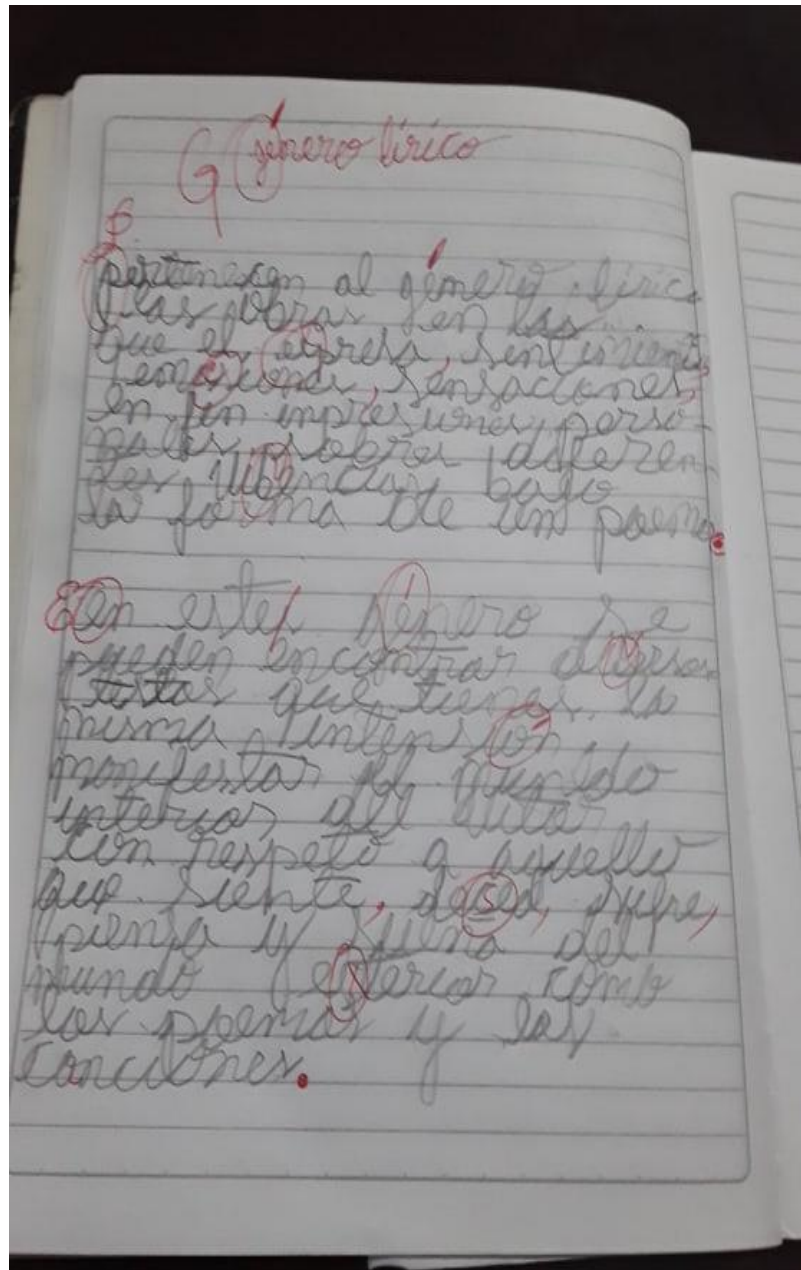 G género lírico
P
pertenesen al género liric
las obras en las
que el expresa, sentimient
emosione, sensaciones,
en fin inpresiones perso-
nales sobre diferen-
tes vibencias bajo
la forma de un poema.
E en este género se
pueden encontrar diverson
que tienes la
misma intension
monifestar el mundo
interior del autor
con respeto a aquello
que siente, desea, sufre,
piensa y sueña del
mundo esterior como
los poemas y las
canciones.